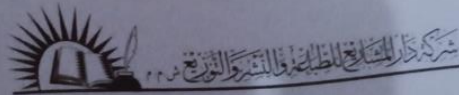 شركة دار المشاريع للطباعة والنشر والتوزيع ش.م.م